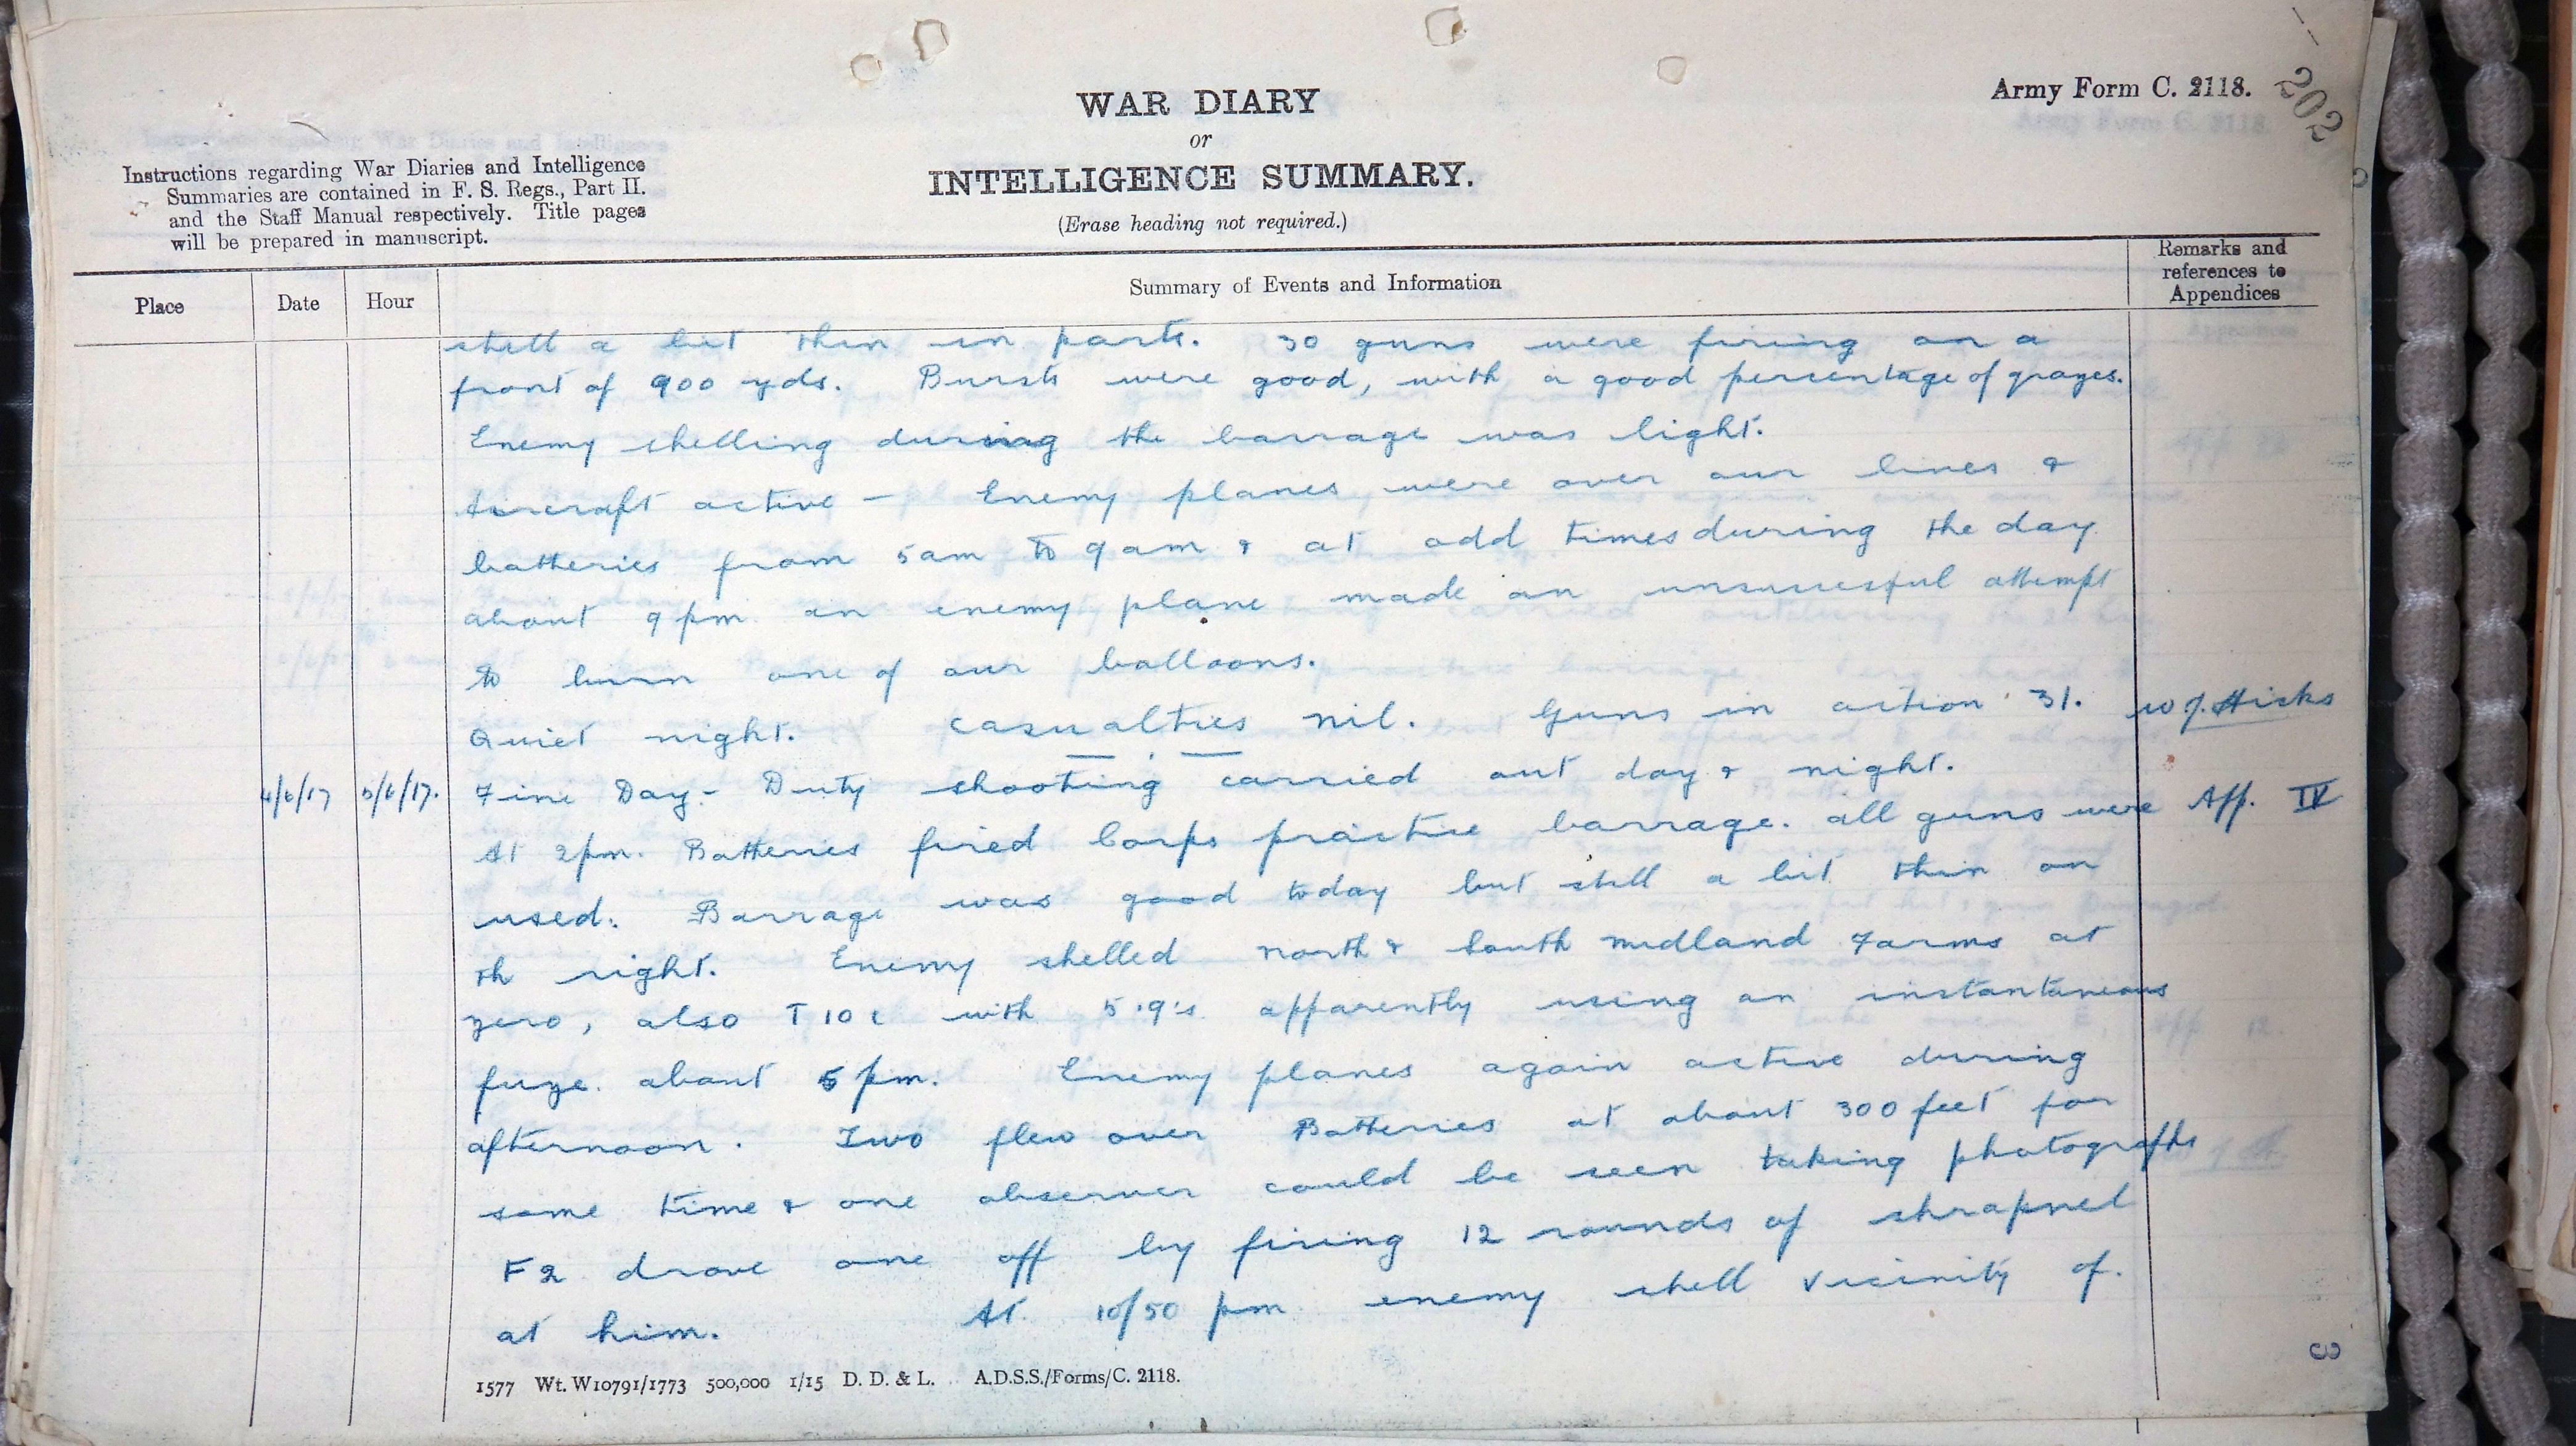 WAR DIARY
or
INTELLIGENCE SUMMARY.
(Erase heading not required.)
Army Form C. 2118.
202
Instructions regarding War Diaries and Intelligence
Summaries are contained in F. S. Regs., Part II.
and the Staff Manual respectively. Title pages
will be prepared in manuscript.
Place
Date
Hour
Summary of Events and Information
Remarks and
references to
Appendices
still a bit thin in parts. 30 guns were firing on a
front of 900 yds. Bursts were good, with a good percentage of grazes.
Enemy shelling during the barrage was light.
Aircraft active — Enemy planes were over our lines &
batteries from 5am to 9am & at odd times during the day
about 9pm an enemy plane made an unsuccessful attempt
to burn one of our balloons.
Quiet night. Casualties nil. Guns in action 31. W J. Hicks
4/6/17 5/6/17. Fine Day - Duty shooting carried out day & night.
At 2pm. Batteries fired Corps practice barrage. all guns were App. IV
used. Barrage was good today but still a bit thin on
th right. Enemy shelled North & South Midland Farms at
zero, also T 10 c with 5.9's apparently using an instantaneous
fuze. about 5 pm. Enemy planes again active during
afternoon. Two flew over Batteries at about 300 feet for
some time & one observer could be seen taking photographs
F2 drove one off by firing 12 rounds of shrapnel
at him. At 10/50 pm enemy shell vicinity of.
1577 Wt. W10791/1773 500,000 1/15 D. D. & L. A.D.S.S./Forms/C. 2118.
3